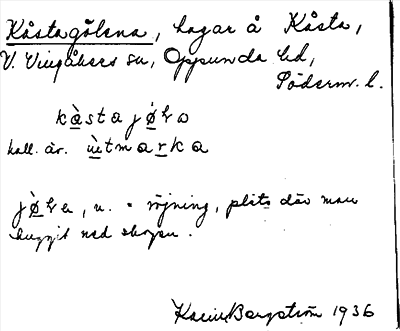 Kåstagölena, hagar å Kåsta,
V. Vingåkers sn, Oppunda hd,
Söderm. l.
kåstajølo
kall. äv. ùtmarka
jøle, n. = röjning, plats där man
huggit ned skogen.
Karin Bergström 1936